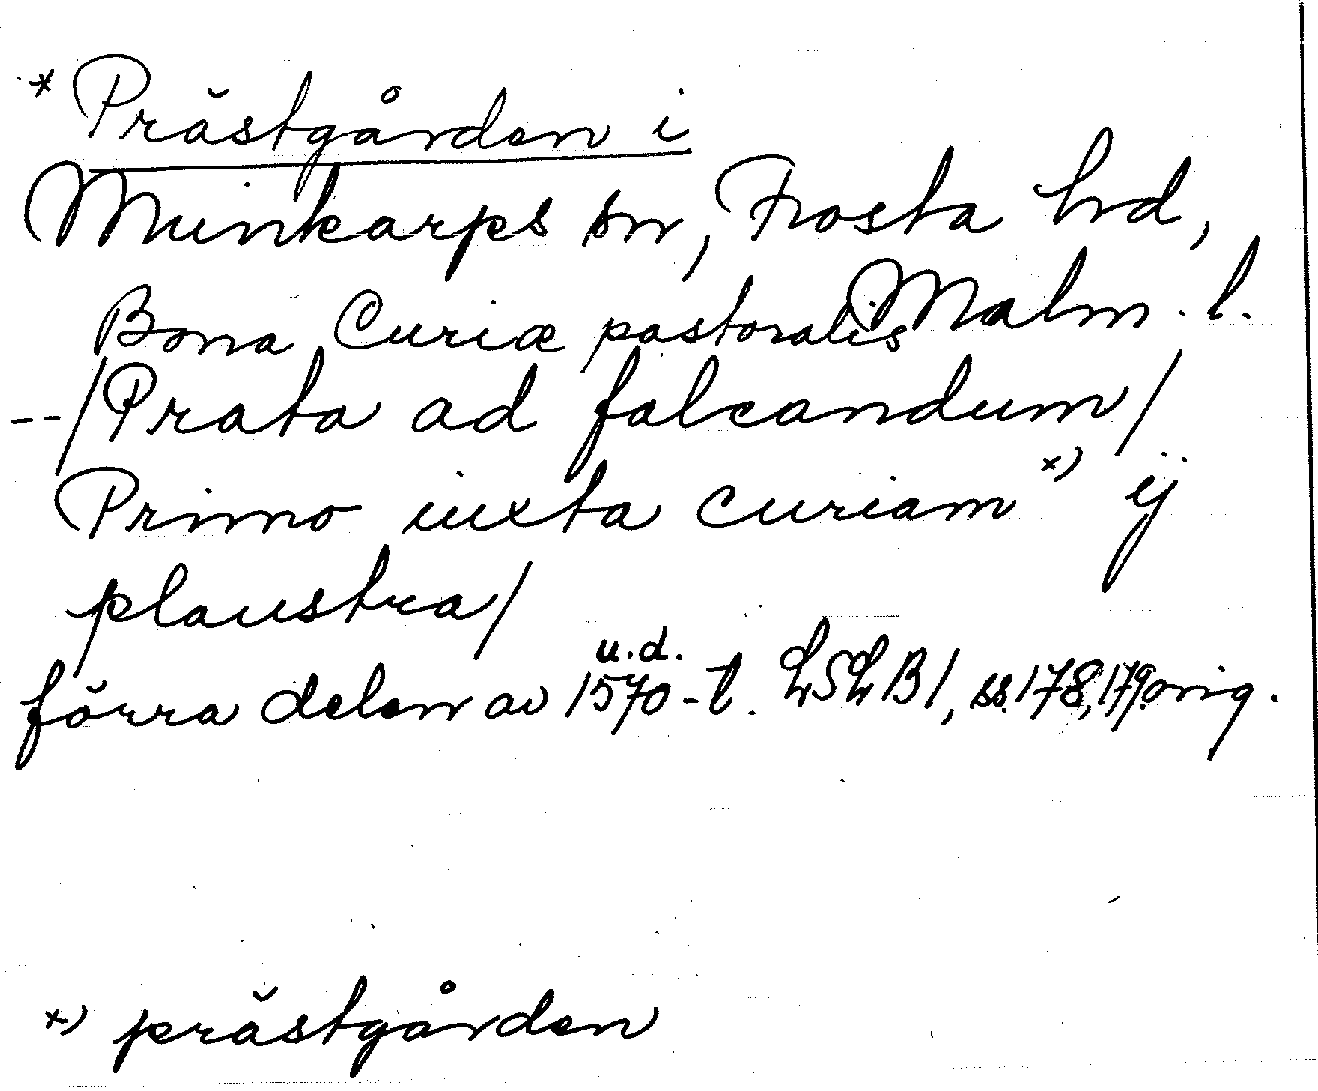 * Prästgården i
Munkarps sn, Frosta hd,
Malm. l.
Bona Curiæ pastoralis
--/Prata ad falcandum/
Primo iuxta curiam x) ij
plaustra/
u.d.
förra delen av 1570-t. LSLB1, ss.178,179 orig.
x) prästgården